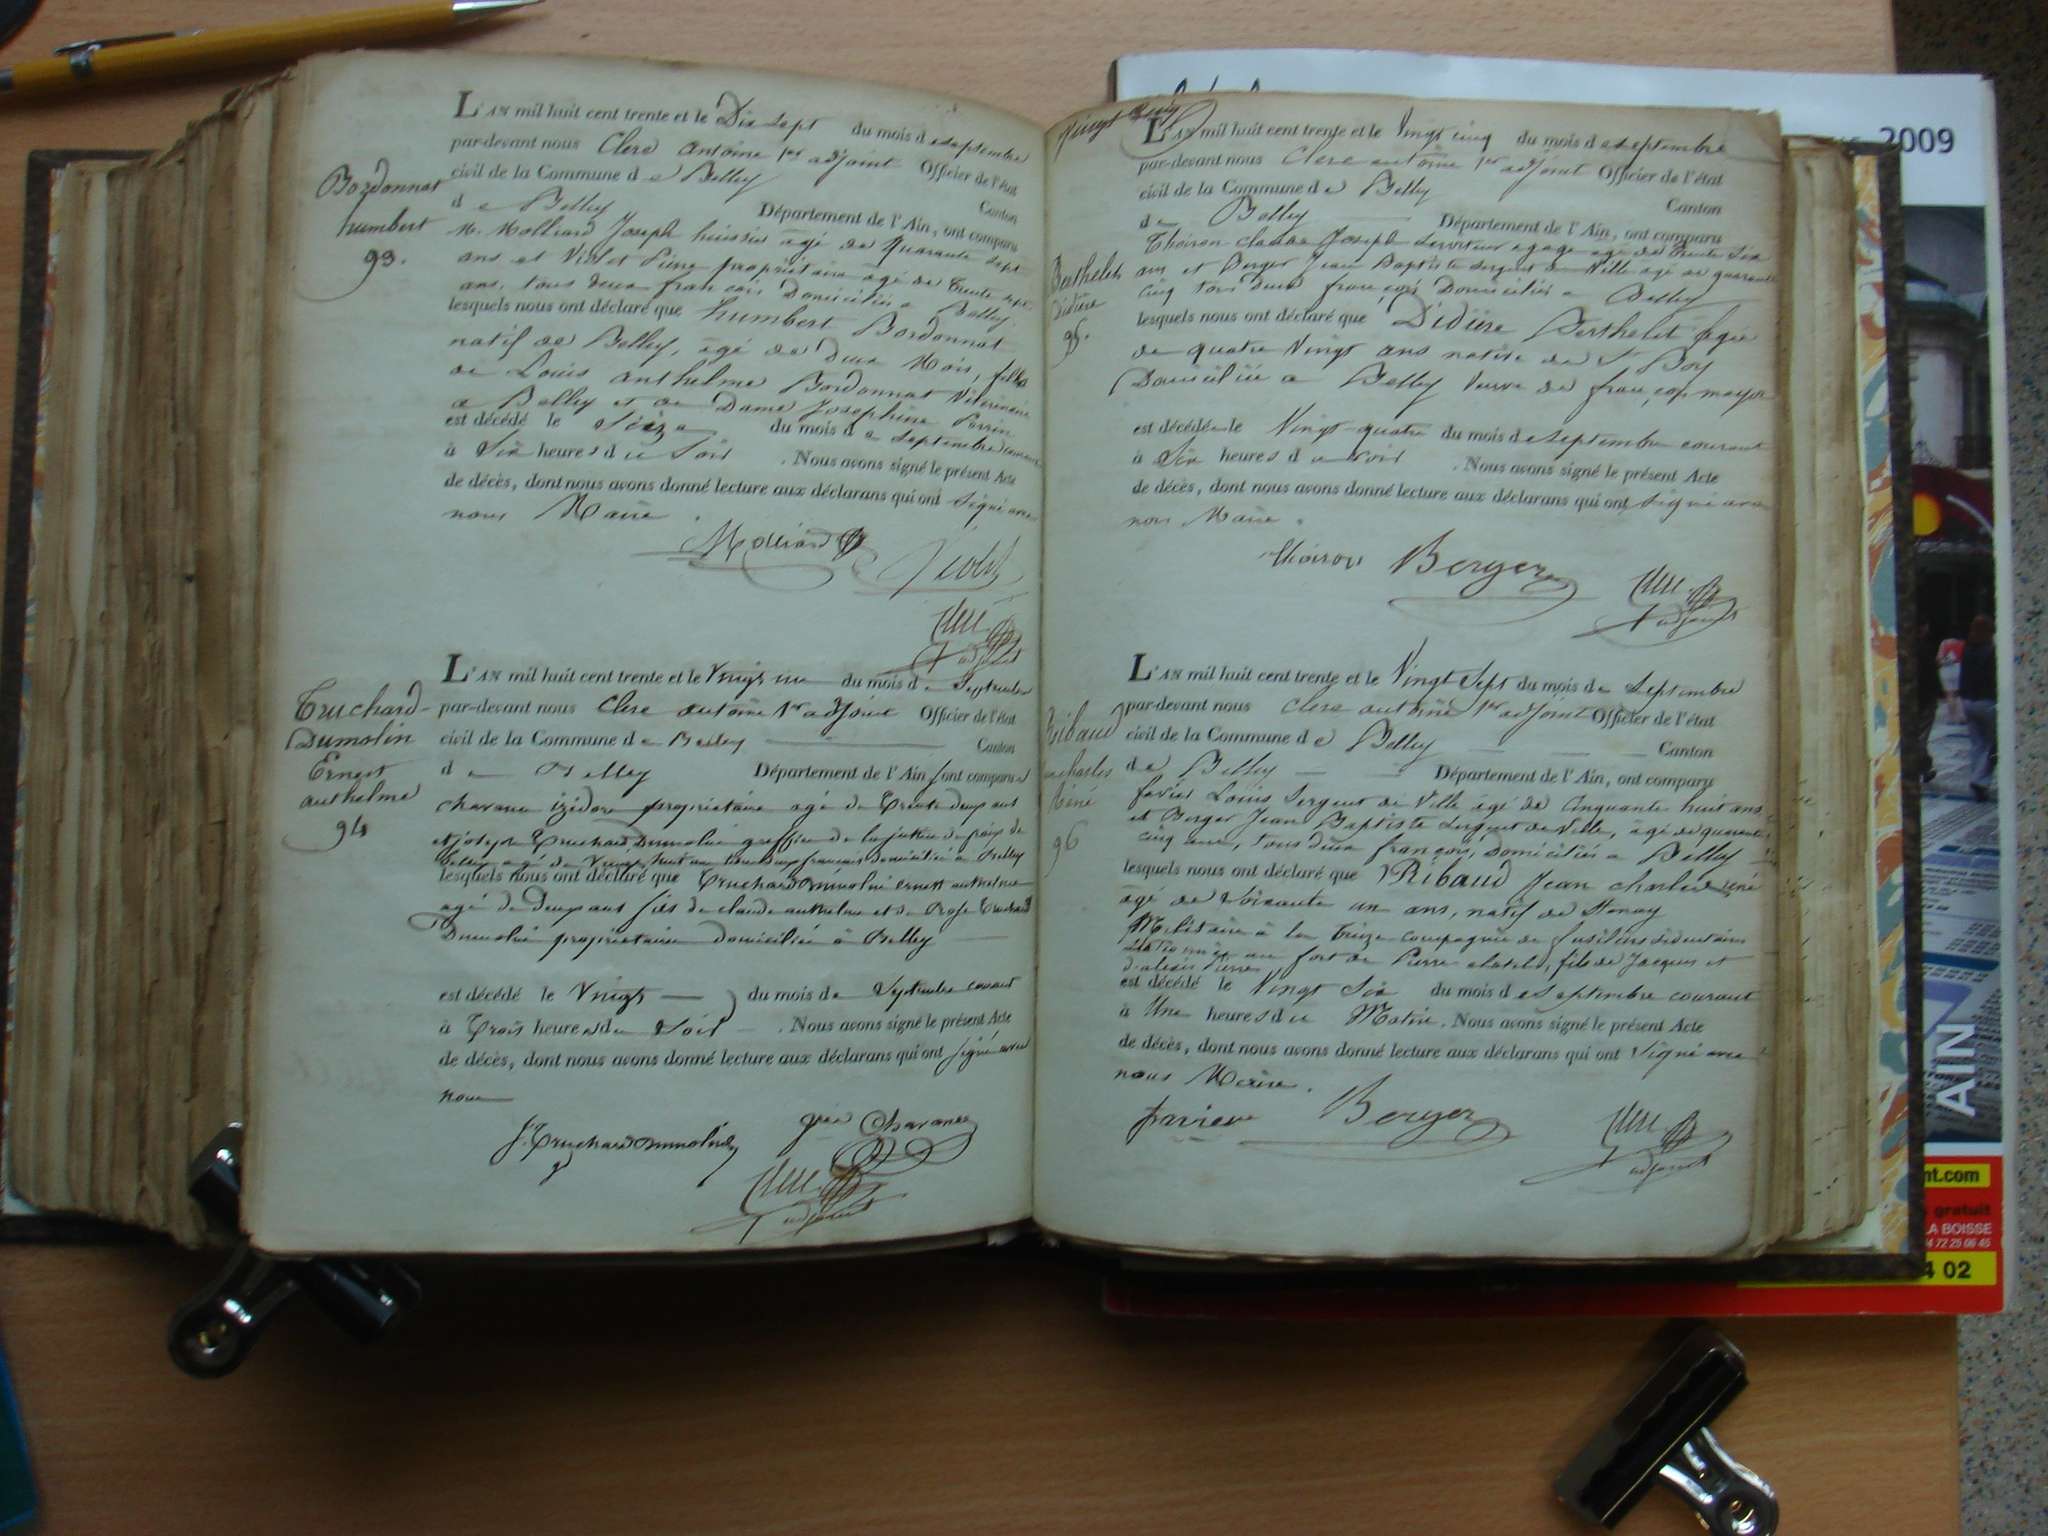 L'AN mil huit cent trente et le Dix sept du mois d e septembre
par-devant nous Clerc antoine 1er adjoint Officier de l'état
civil de la Commune d e Belley Canton
d e Belley Département de l'Ain, ont comparu
M. Molliard Joseph huissier âgé de Quarante sept
ans et Violet Pierre propriétaire âgé de trente sept
ans, tous deux français Domiciliés a Belley.
lesquels nous ont déclaré que humbert Bordonnat
natif de Belley, âgé de Deux Mois, fils
de Louis anthelme Bordonnat Vétérinaire
a Belley et de Dame Josephine Perrin
est décédé le Seize du mois d e septembre courant
à Six heures d u Soir . Nous avons signé le présent Acte
de décès, dont nous avons donné lecture aux déclarans qui ont signé avec
nous Maire.
Bordonnat
humbert
93.
Molliard
Violet
Clerc
adjoint
L'AN mil huit cent trente et le Vingt un du mois d e Septembre
par-devant nous Clerc antoine 1er adjoint Officier de l'état
civil de la Commune d e Belley Canton
d e Belley Département de l'Ain, ont comparu
chavanne izidore propriétaire agé de Trente deux ans
et joseph Truchard Dumolin greffier de la justice de paix de
Belley agé de Vingt huit ans tous deux français domiciliés à Belley
lesquels nous ont déclaré que Truchard Dumolin ernest anthelme
agé de deux ans fils de claude anthelme et de Rose Truchard
Dumolin propriétaire domicilié à Belley
est décédé le Vingt du mois d e Septembre courant
à Trois heures du Soir . Nous avons signé le présent Acte
de décès, dont nous avons donné lecture aux déclarans qui ont signé avec
nous
Truchard-
Dumolin
Ernest
anthelme
94
J. Truchard Dumolin
Chavanne
Clerc
adjoint
Vingt cinq
L'AN mil huit cent trente et le Vingt cinq du mois d e septembre
par-devant nous Clerc antoine 1er adjoint Officier de l'état
civil de la Commune d e Belley Canton
d e Belley Département de l'Ain, ont comparu
Thoiron claude Joseph serviteur agagé âgé de Trente Six
ans et Berger Jean Baptiste sergent de Ville âgé de quarante
cinq tous deux français Domiciliés a Belley
lesquels nous ont déclaré que Didière Berthelet agée
de quatre Vingt ans native de St Boy
Domiciliée a Belley Veuve de françois mayor
est décédée le Vingt-quatre du mois d e septembre courant
à Six heures d u soir . Nous avons signé le présent Acte
de décès, dont nous avons donné lecture aux déclarans qui ont signé avec
nous Maire.
Berthelet
Didière
95.
thoiron Berger
Clerc
adjoint
L'AN mil huit cent trente et le Vingt Sept du mois d e Septembre
par-devant nous Clerc antoine 1er adjoint Officier de l'état
civil de la Commune d e Belley Canton
d e Belley Département de l'Ain, ont comparu
favier Louis Sergent de Ville âgé de Cinquante huit ans
et Berger Jean Baptiste Sergent de Ville, âgé de quarante
cinq ans, tous deux français, Domiciliés a Belley
lesquels nous ont déclaré que Ribaud Jean charles rené
âgé de Soixante un ans, natif de Stenay
Militaire à la treize compagnie de fusiliers sédentaires
stationnée au fort de Pierre chatel, fils de Jacques et
d'alexis Pierre
est décédé le Vingt Six du mois d e septembre courant
à Une heures d u Matin. Nous avons signé le présent Acte
de décès, dont nous avons donné lecture aux déclarans qui ont signé avec
nous Maire.
Ribaud
charles
Réné
96
favier Berger
Clerc
adjoint
2009
AIN
nt.com
gratuit
LA BOISSE
4 72 25 06 45
4 02